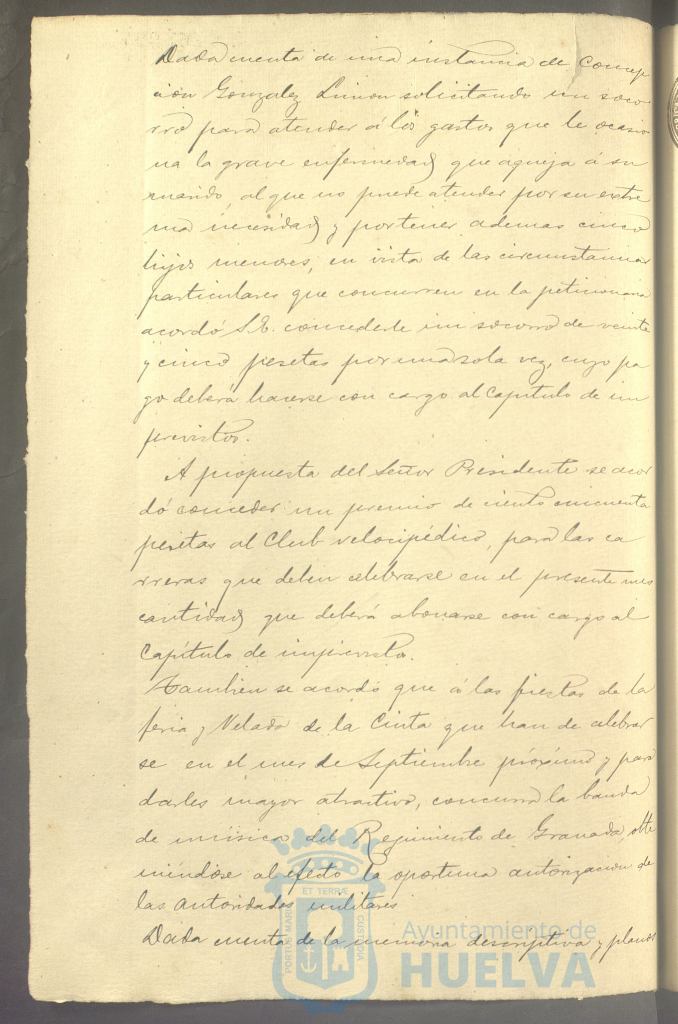 Dada cuenta de una instancia de Concep
ción Gonzalez Limon solicitando un soco
rro para atender á los gastos que le ocasio
na la grave enfermedad que aqueja á su
marido, al que no puede atender por su extre
ma necesidad y por tener ademas cinco
hijos menores, en vista de las circunstancias
particulares que concurren en la peticionaria
acordó S.E. concederle un socorro de veinte
y cinco pesetas por una sola vez, cuyo pa
go deberá hacerse con cargo al Capitulo de im
previstos.
A propuesta del Señor Presidente se acor
dó conceder un premio de ciento cincuenta
pesetas al Club velocipédico, para las ca
rreras que deben celebrarse en el presente mes
cantidad que deberá abonarse con cargo al
Capítulo de imprevistos.
Tambien se acordó que á las fiestas de la
feria y Velada de la Cinta que han de celebrar
se en el mes de Septiembre próximo y para
darles mayor atractivo, concurra la banda
de música del Regimiento de Granada, obte
niéndose al efecto la oportuna autorizacion de
las autoridades militares
Dada cuenta de la memoria descriptiva y planos
PORTUS MARIS ET TERRÆ CUSTODIA
Ayuntamiento de
HUELVA